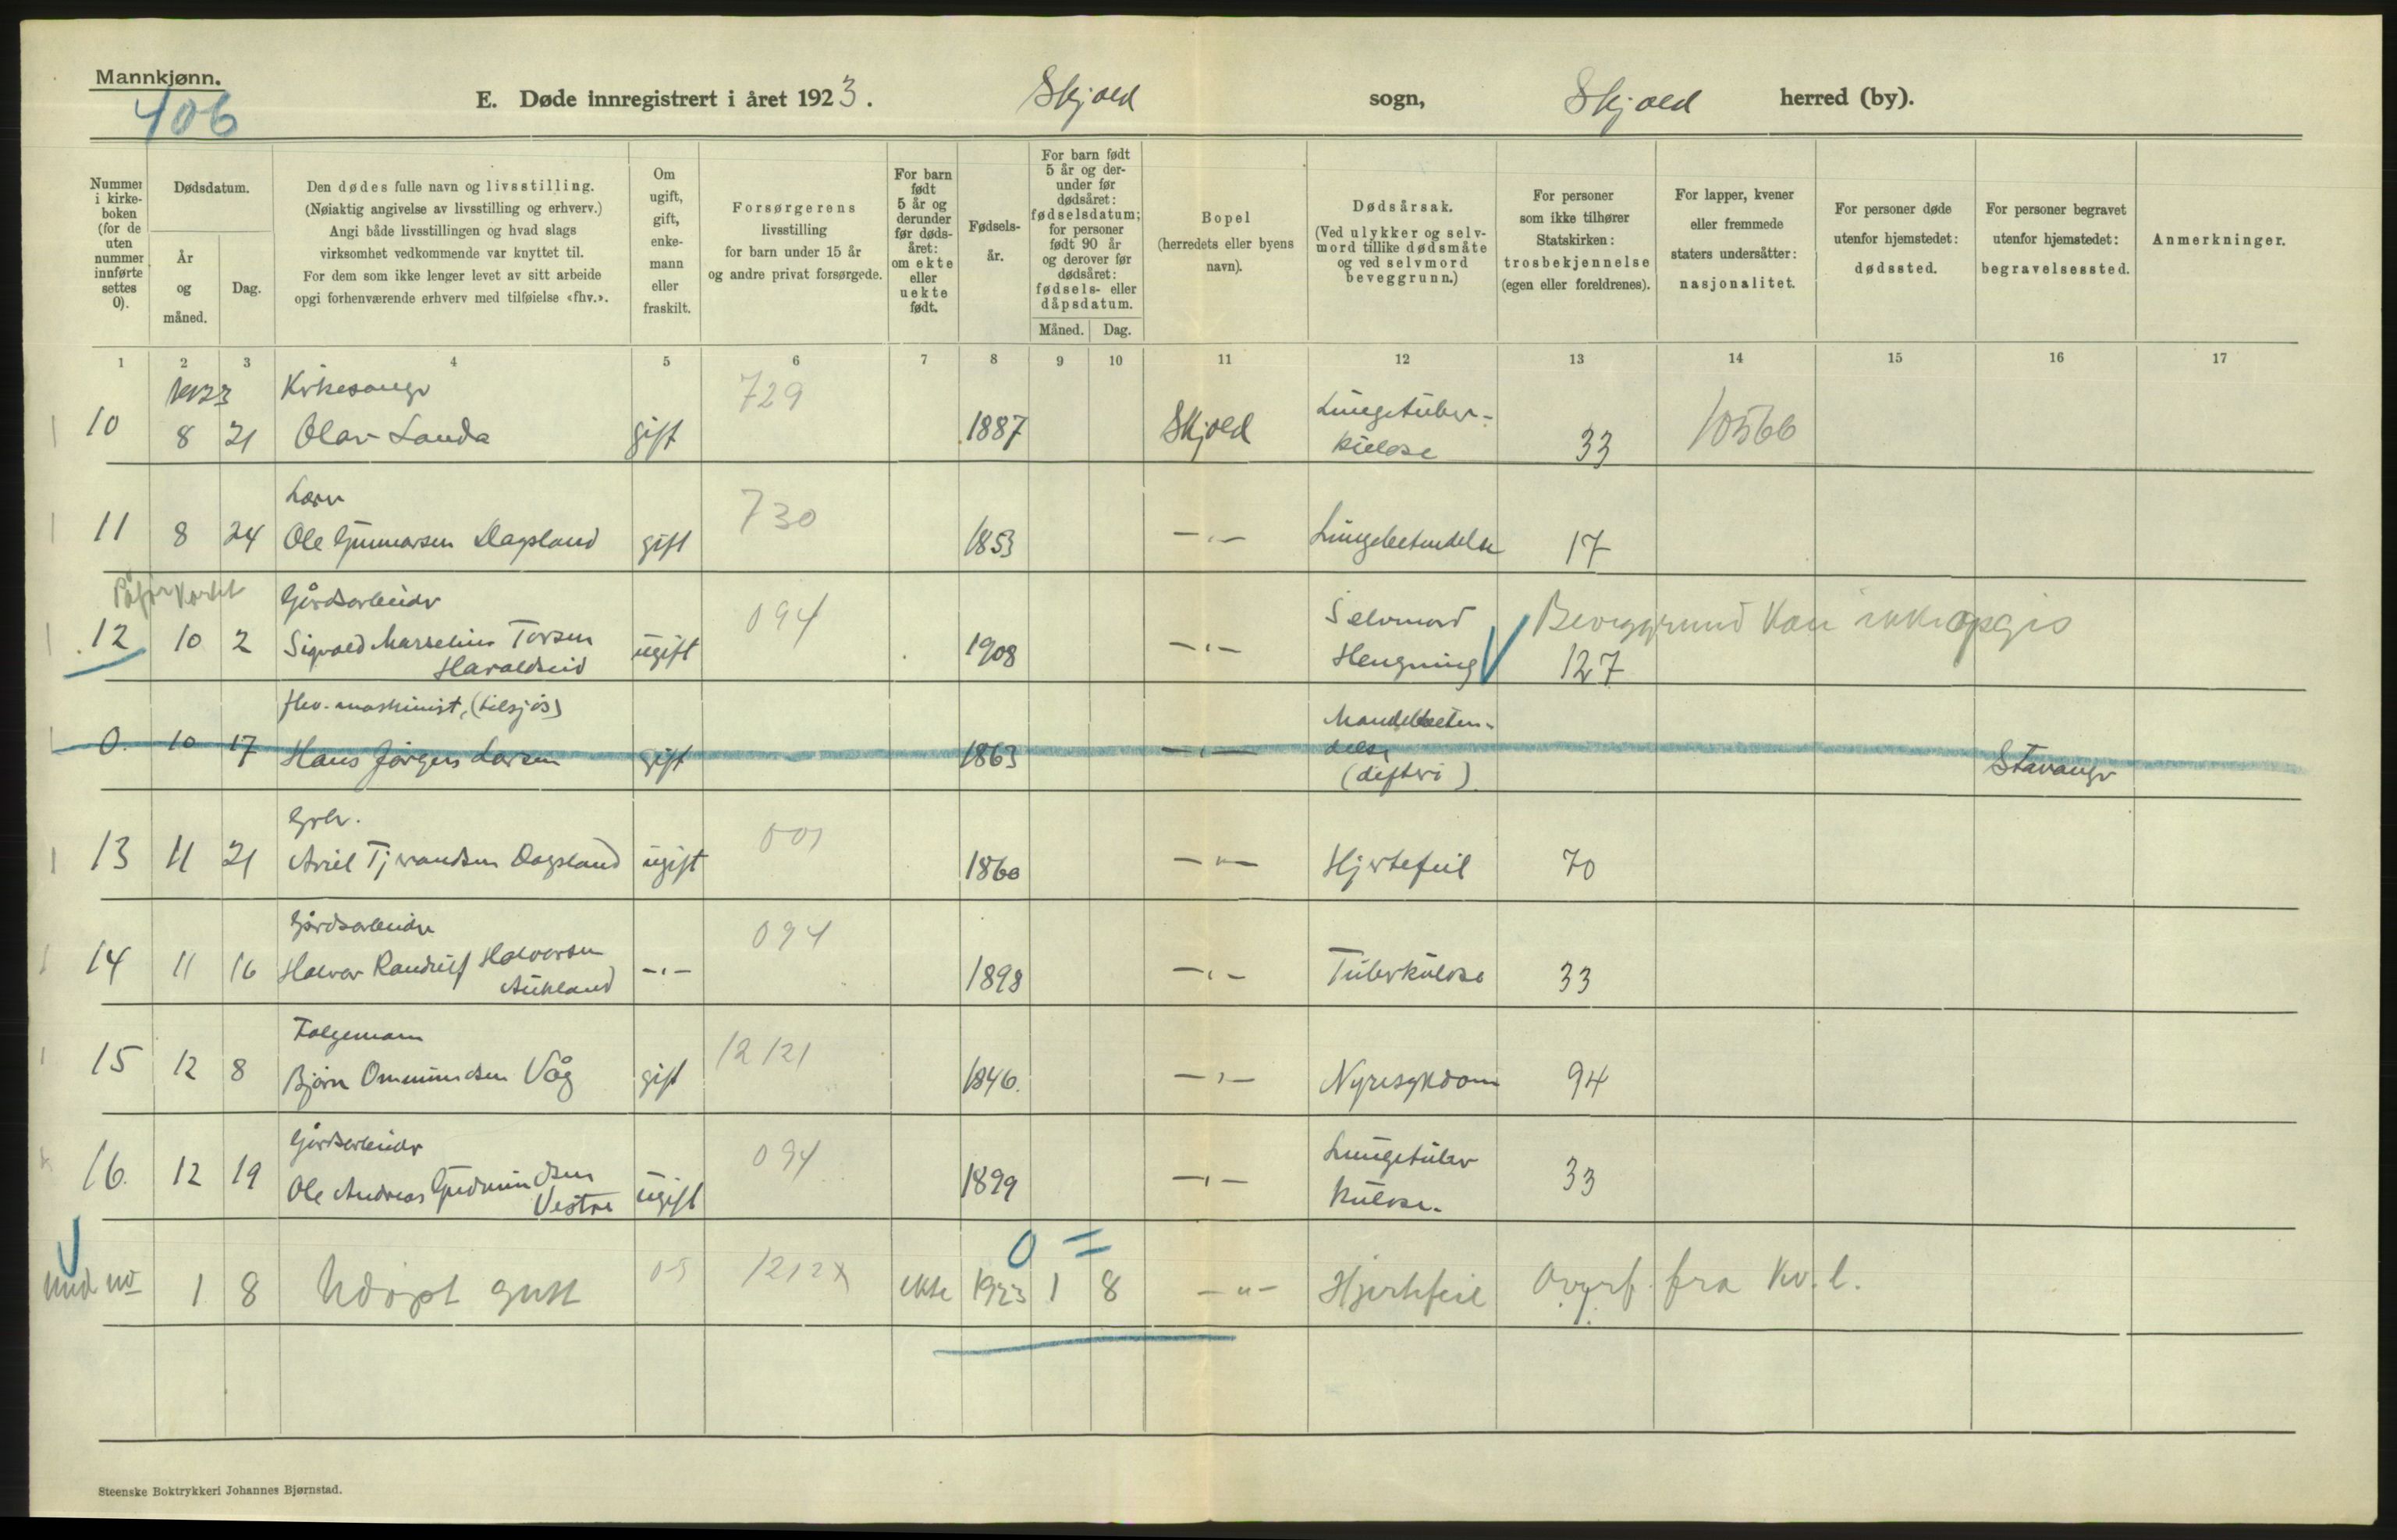 Mannkjønn.
406
E. Døde innregistrert i året 1923. Skjold sogn, Skjold herred (by).
Nummer i kirkeboken (for de uten nummer innførte settes 0).
Dødsdatum.
År og måned.
Dag.
Den dødes fulle navn og livsstilling.
(Nøiaktig angivelse av livsstilling og erhverv.)
Angi både livsstillingen og hvad slags
virksomhet vedkommende var knyttet til.
For dem som ikke lenger levet av sitt arbeide
opgi forhenværende erhverv med tilføielse «fhv.».
Om ugift, gift, enkemann eller fraskilt.
Forsørgerens
livsstilling
for barn under 15 år
og andre privat forsørgede.
For barn født 5 år og derunder før dødsåret: om ekte eller uekte født.
Fødselsår.
For barn født 5 år og derunder før dødsåret: fødselsdatum; for personer født 90 år og derover før dødsåret: fødsels- eller dåpsdatum.
Måned. Dag.
Bopel
(herredets eller byens
navn).
Dødsårsak.
(Ved ulykker og selvmord tillike dødsmåte og ved selvmord beveggrunn.)
For personer
som ikke tilhører
Statskirken:
trosbekjennelse
(egen eller foreldrenes).
For lapper, kvener
eller fremmede
staters undersåtter:
nasjonalitet.
For personer døde
utenfor hjemstedet:
dødssted.
For personer begravet
utenfor hjemstedet:
begravelsessted.
Anmerkninger.
1 2 3 4 5 6 7 8 9 10 11 12 13 14 15 16 17
1923 Kirkesanger 729
10 8 21 Olav Landa gift 1887 Skjold Lungetuber-
kulose 33 10566
730
11 8 24 Ole Gunnarsen Dagsland gift 1853 -"- Lungebetendelse 17
Gårdsarbeider 094 Selvmord Beveggrund kan ikke opgis
12 10 2 Sigvald Marselius Torsen ugift 1908 -"-
Haraldseid Hengning 127
fhv. maskinist, (tilsjøs) Mandelbeten-
0. 10 17 Hans Jørgen Larsen gift 1863 -"- delse
(difteri) Stavanger
Grbr. 001
13 11 21 Tjerandsen Dagsland ugift 1860 -"- Hjertefeil 70
Gårdsarbeider 094
14 11 16 Halvor Randulf Halvorsen -"- 1898 -"- Tuberkulose 33
Aukland
Folgemann 12121
15 12 8 Bjørn Ommundsen Våg gift 1846. -"- Nyresykdom 94
Gårdsarbeider 094 Lungetuber
16. 12 19 Ole Andreas Gudmundsen ugift 1899 -"- 33
Vestre kulose.
0 =
1 8 Udøpt gutt 05 1212X ekte 1923 1 8 -"- Hjertefeil Overf. fra Kv.l.
Steenske Boktrykkeri Johannes Bjørnstad.